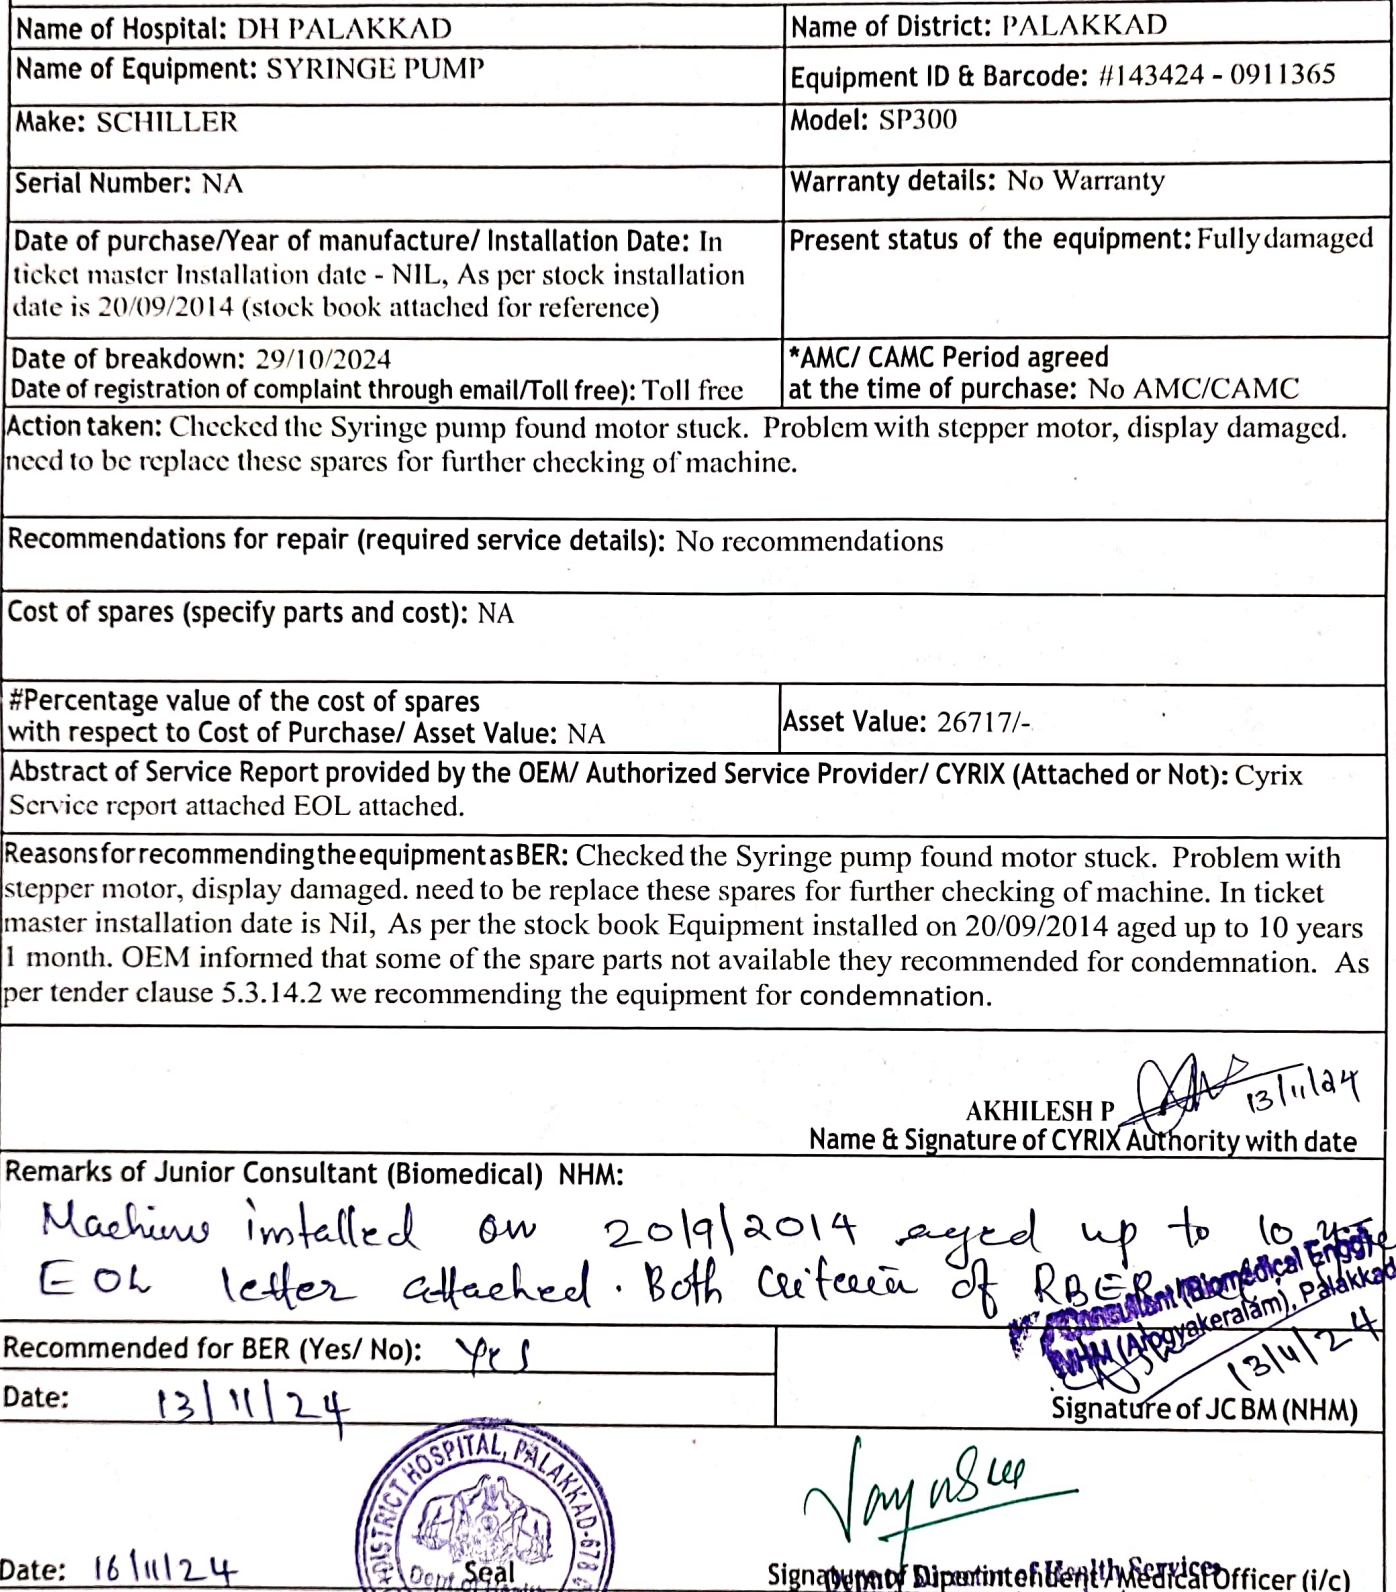 Name of Hospital: DH PALAKKAD
Name of District: PALAKKAD
Name of Equipment: SYRINGE PUMP
Equipment ID & Barcode: #143424 - 0911365
Make: SCHILLER
Model: SP300
Serial Number: NA
Warranty details: No Warranty
Date of purchase/Year of manufacture/ Installation Date: In
ticket master Installation date - NIL, As per stock installation
date is 20/09/2014 (stock book attached for reference)
Present status of the equipment: Fully damaged
Date of breakdown: 29/10/2024
Date of registration of complaint through email/Toll free): Toll free
*AMC/ CAMC Period agreed
at the time of purchase: No AMC/CAMC
Action taken: Checked the Syringe pump found motor stuck. Problem with stepper motor, display damaged.
need to be replace these spares for further checking of machine.
Recommendations for repair (required service details): No recommendations
Cost of spares (specify parts and cost): NA
#Percentage value of the cost of spares
with respect to Cost of Purchase/ Asset Value: NA
Asset Value: 26717/-
Abstract of Service Report provided by the OEM/ Authorized Service Provider/ CYRIX (Attached or Not): Cyrix
Service report attached EOL attached.
Reasons for recommending the equipment as BER: Checked the Syringe pump found motor stuck. Problem with
stepper motor, display damaged. need to be replace these spares for further checking of machine. In ticket
master installation date is Nil, As per the stock book Equipment installed on 20/09/2014 aged up to 10 years
1 month. OEM informed that some of the spare parts not available they recommended for condemnation. As
per tender clause 5.3.14.2 we recommending the equipment for condemnation.
AKHILESH P 13/11/24
Name & Signature of CYRIX Authority with date
Remarks of Junior Consultant (Biomedical) NHM:
Machine installed on 20/9/2014 aged up to 10
EOL letter attached. Both criteria of RBER
Consultant (Biomedical Engg)
NHM (Arogyakeralam), Palakkad
Recommended for BER (Yes/ No): Yes
13/11/24
Date: 13/11/24
Signature of JC BM (NHM)
DISTRICT HOSPITAL, PALAKKAD-678
Date: 16/11/24
Seal
Signature of Superintendent / Medical Officer (i/c)